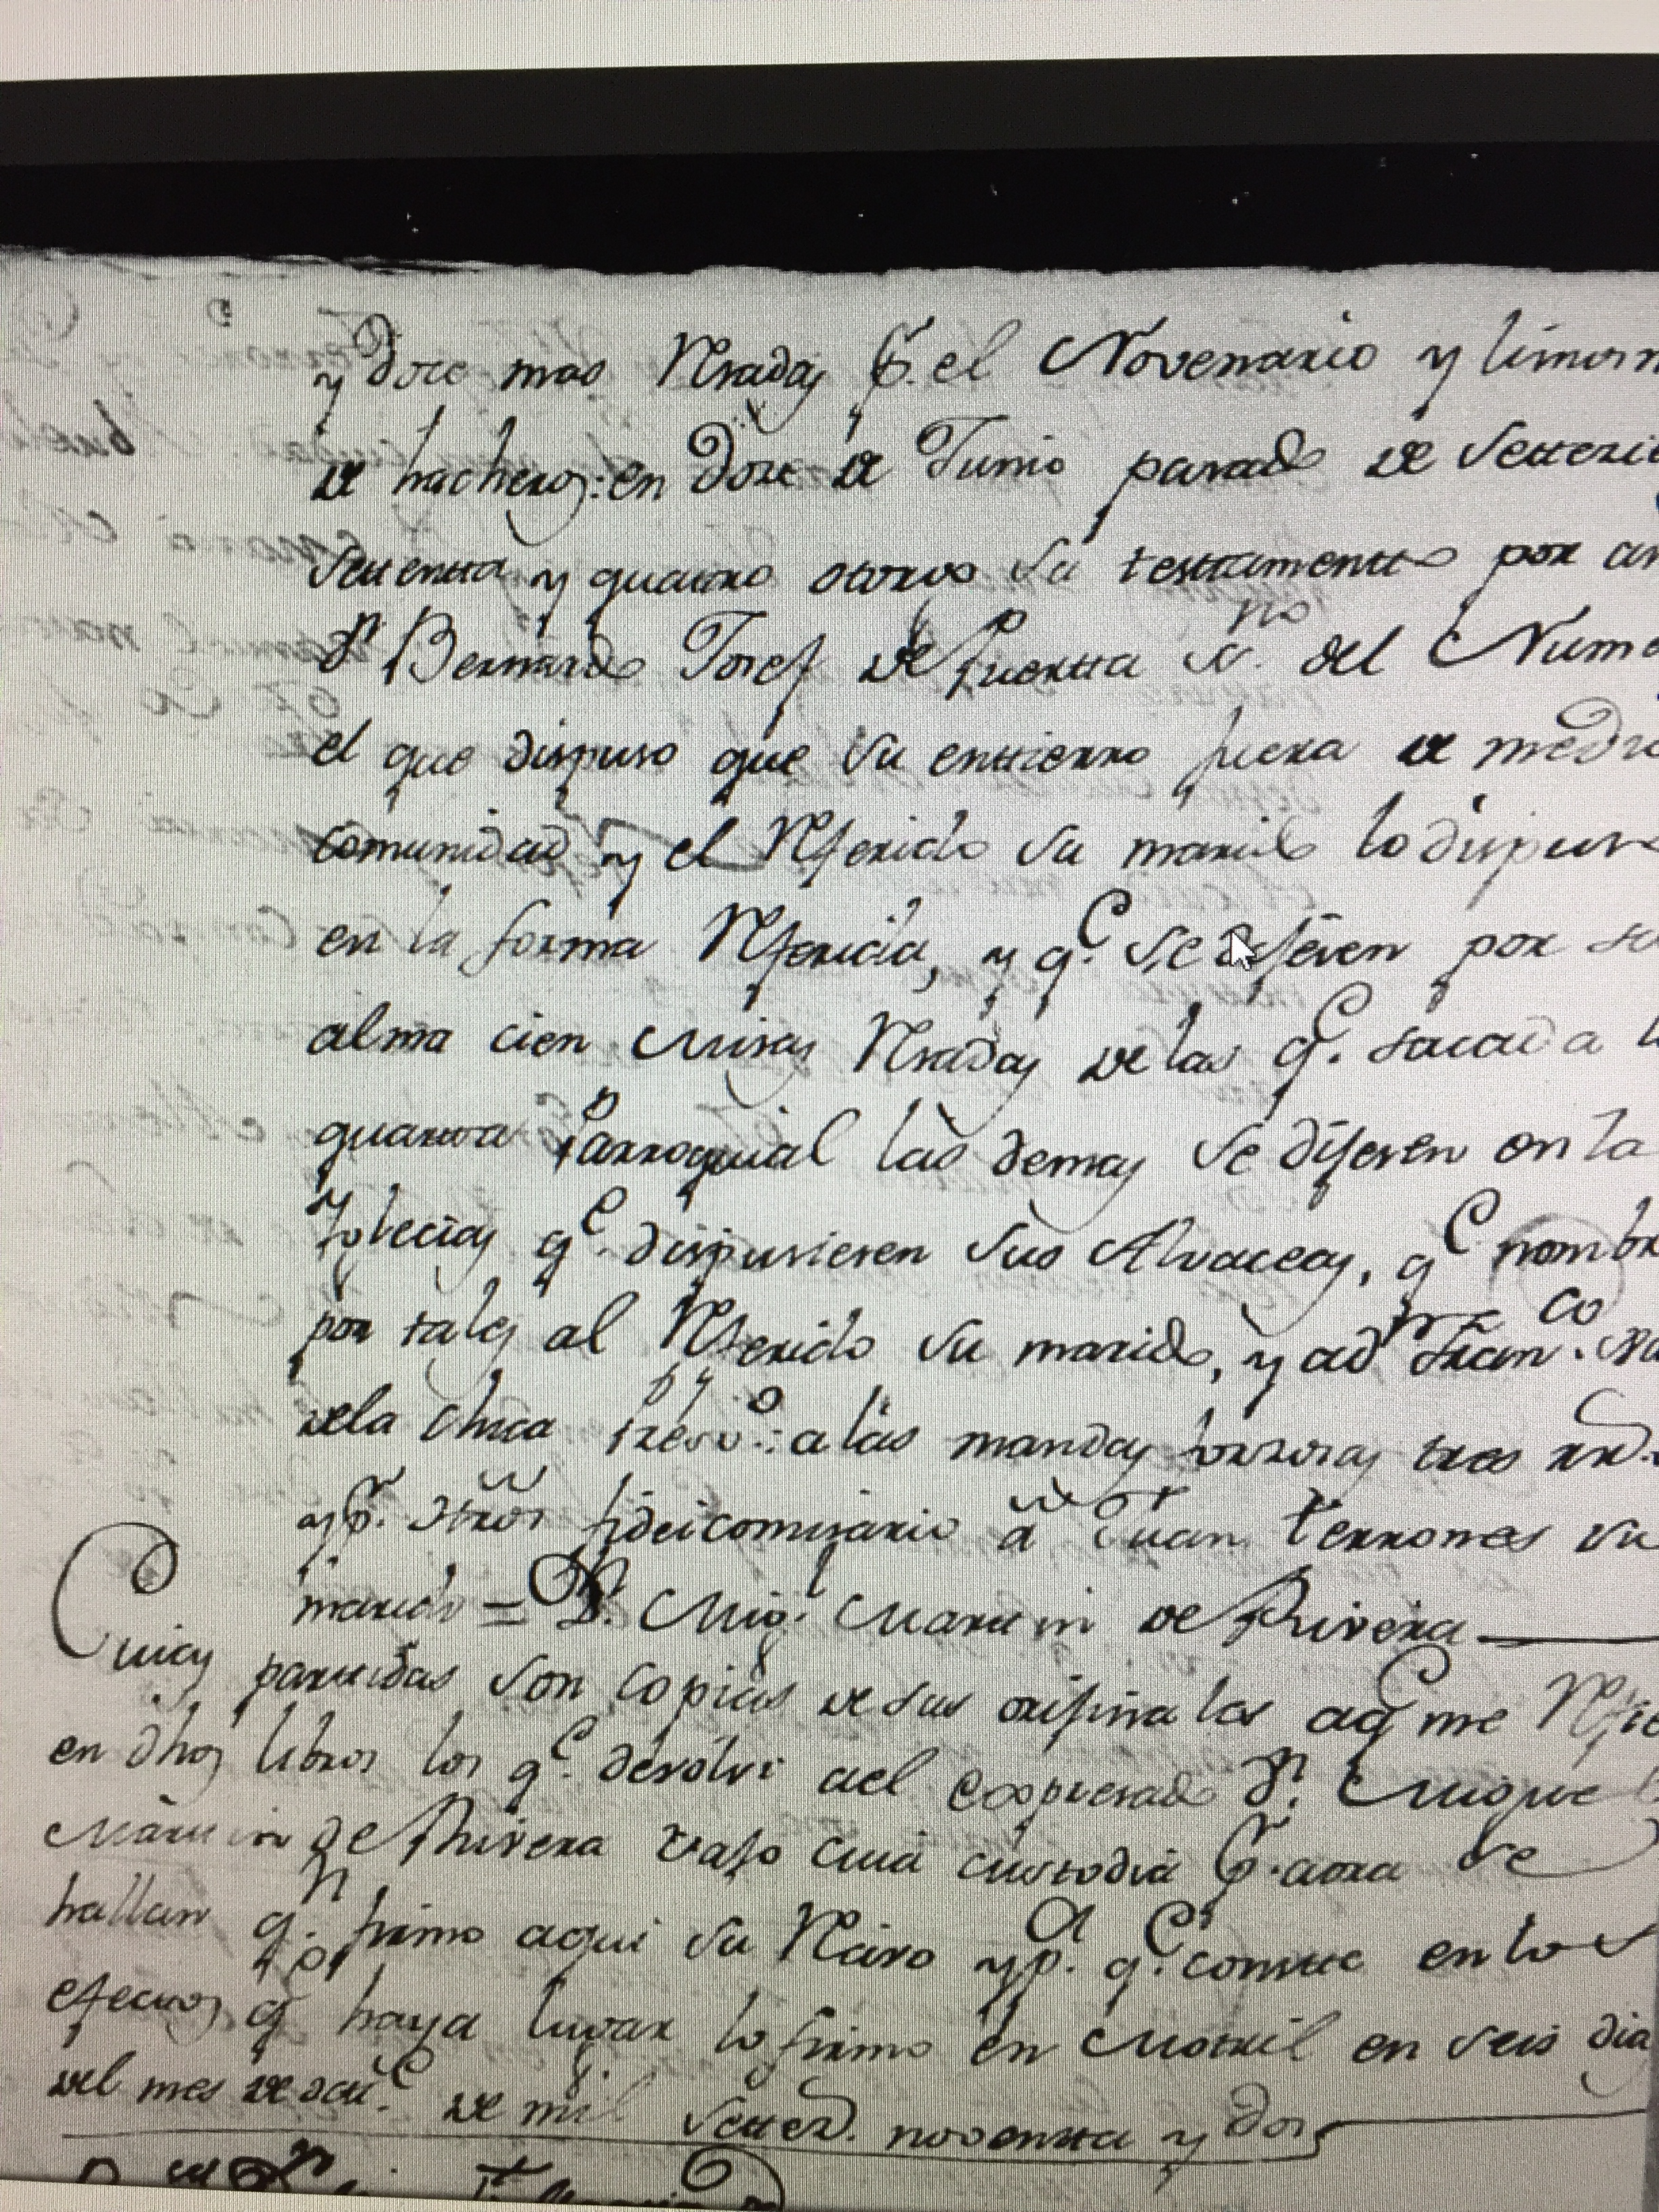 y doze mas Rezadas p.r el Novenario y limosn
de hacheros: en doze de Junio pasado de Setteci
settenta y quatro otorgo su testamento por an
Dn Bernardo Josef de Puertta ss.no del Nume
el que dispuso que su entierro fuera de medi
comunidad y el Referido su marido lo dispuso
en la forma Referida, y q.e se dijesen por su
alma cien Misas Rezadas de las q.e sacada l
quarta Parroquial las demas se dijesen en la
Yglecias q.e dispusiesen sus Alvaceas, q.e nombr
por tales al Referido su marido, y a dn Fran.co
de la Chica presv.o: a las mandas forzosas tres rr.
y p.r Fideicomisario a Juan terrones su
marido = Dn. Mig.l Martin de Rivera
Cuias partidas son copias de sus orijinales a q.e me Refie
en dhos libros los q.e devolvi a el expresado Dn. Miguel
Martin de Rivera vajo cuia custodia p.r aora se
hallan q.n firmo aqui su Recivo y p.a q.e conste en los
efectos q.e haya lugar lo firmo en Motril en seis dia
del mes de de mil setted. noventta y dos